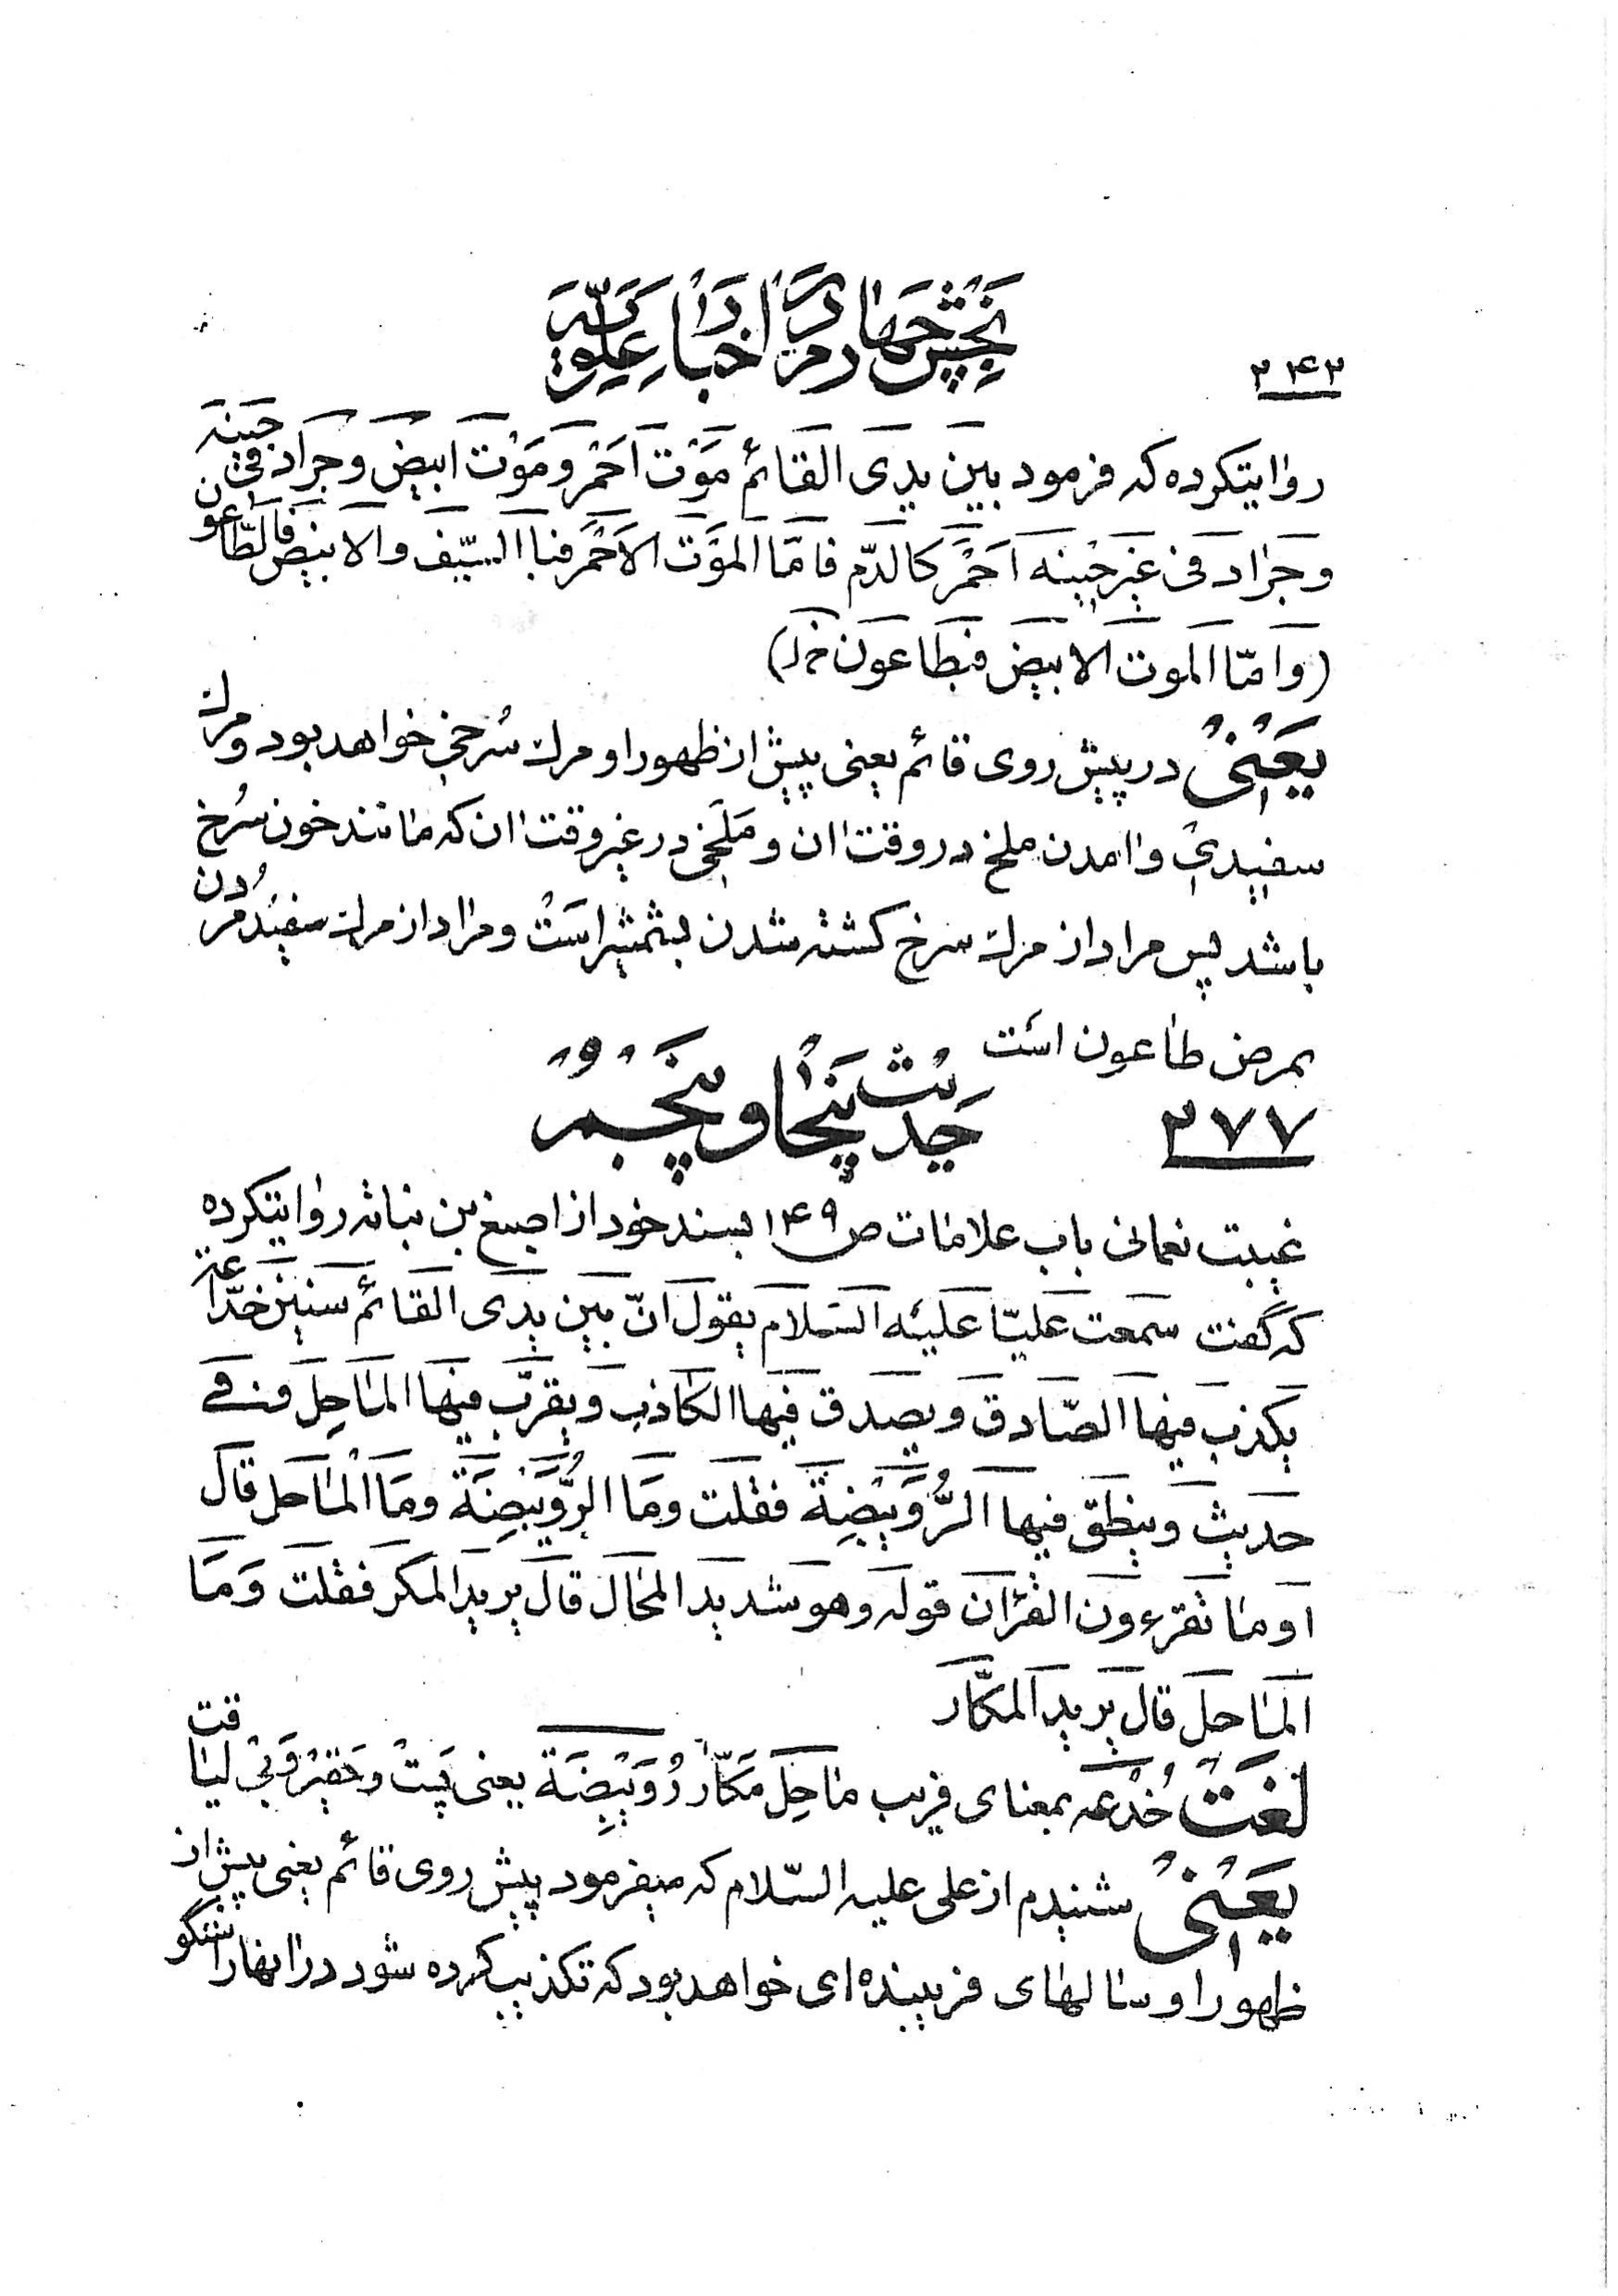 بخش چهارم در اخبار علویه
۲۴۳
روایتکرده که فرمود بین یدی القائم موت احمر و موت ابیض و جراد فی حینه
و جراد فی غیر حینه احمر کالدّم فامّا الموت الاحمر فبا السّیف والابیض فالطّاعون
(وامّا الموت الابیض فبطاعون خ‌ل)
یعنی در پیش روی قائم یعنی پیش از ظهور او مرک سرخی خواهد بود و مرک
سفیدی و امدن ملخ در وقت ان و ملخی در غیر وقت ان که مانند خون سُرخ
باشد پس مراد از مرک سرخ کشته شدن بشمشیر است و مراد از مرک سفید مُردن
بمرض طاعون است
۲۷۷ حدیث پنجاه و پنجم
غیبت نعمانی باب علامات ص۱۴۹ بسند خود از اصبغ بن نباته روایتکرده
که گفت سمعت علیّا علیه السّلام یقول انّ بین یدی القائم سنین خدّاعة
یکذب فیها الصّادق و یصدق فیها الکاذب و یقرّب فیها الماحِل و فی
حدیث و ینطق فیها الرُّوَیْبِضِة فقلت و مَا الرُّوَیْبِضَة و مَا الْماحل قال
او ما تقرءون القرْان قوله و هو شدید المحال قال یرید المکر فقلت وَ مَا
الماحل قال یرید المکّار
لُغَت خُدْعَه بمعنای فریب ماحِل مَکّار رُوَیْبِضَة یعنی پَست و حَقیر و بی لیاقت
یعنی شنیدم از علی علیه السّلام که میفرمود پیش روی قائم یعنی پیش از
ظهور او سالهای فریبنده‌ای خواهد بود که تکذیب کرده شود در انها راستگو